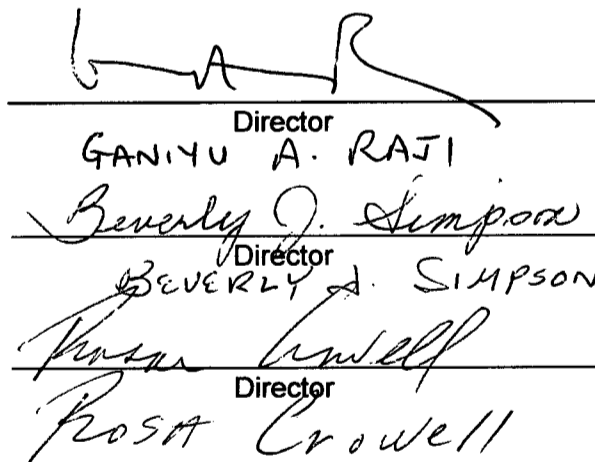 G A R
Director
GANIYU A. RAJI
Beverly J. Simpson
Director
BEVERLY J. SIMPSON
Rosa Crowell
Director
ROSA Crowell